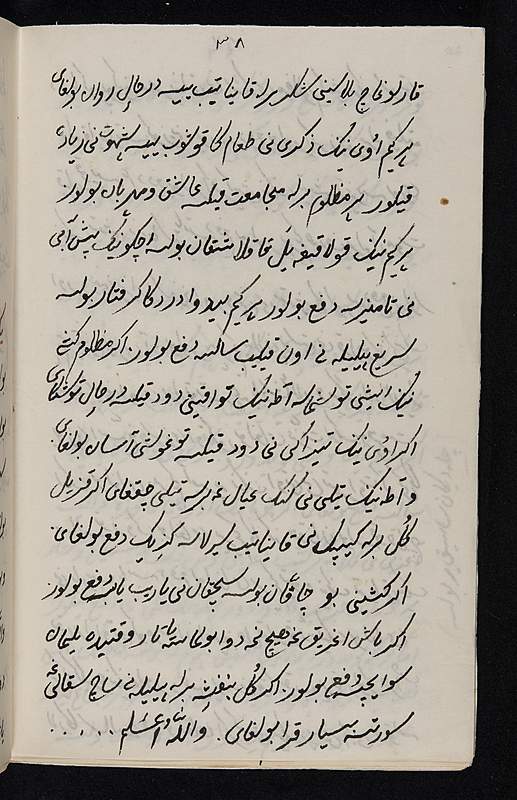 ٣٨
قارلوغاچ بالاسینی شکر برله قایناتیب ییسه درحال روان بولغای
هر کیم اوی نینک ذکری نی طعام کا قوشوب ییسه شهوت نی زیاده
قیلور هر مظلوم برله مجامعت قیلسه عاشق و مهربان بولور
هر کیم نینک قولاقیغه یل قاقلاشقان بولسه اچکو نینک پیش آبی
نی تامیزسه دفع بولور هر کیم درد کا گرفتار بولسه
سریغ هلیله نی اون قیلیب سالسه دفع بولور اگر مظلوم کشی
نینک ایشی توشماسه آط نینک تواقینی دود قیلسه درحال توشکای
اگر اوی نینک تیزاکی نی دود قیلسه توغوشی آسان بولغای
و آط نینک تیلی نی کنک عیال غه برسه تیلی چقغای اگر قزیل
کل برله کیپک نی قایناتیب سیرلاسه دفع بولغای
اگر کشینی بو چاقان بولسه سچقان نی یاریب یابسه دفع بولور
اگر باش اغریق غه هیچ نمه دوا بولماسه
دفع بولور اگر کل بنفشه برله هلیله نی ساچ سقالی غه
سورتسه بسیار قرا بولغای والله اعلم